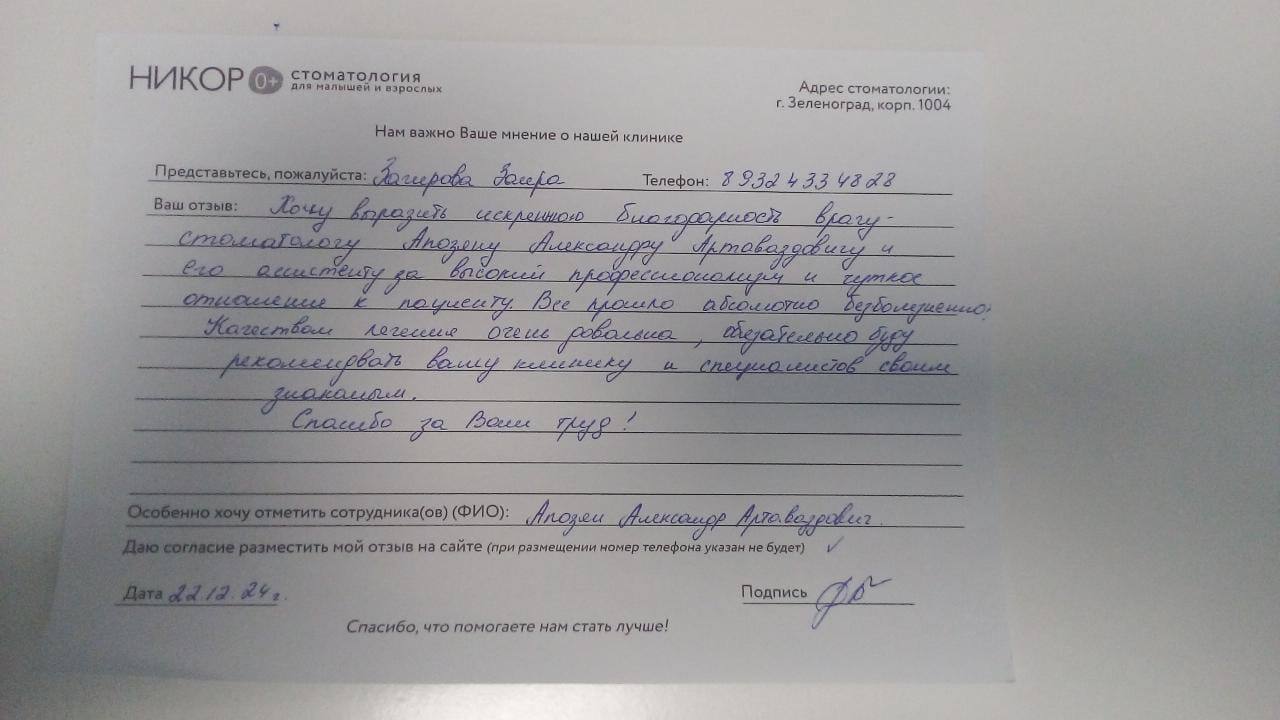 НИКОР 0+ стоматология
для малышей и взрослых
Адрес стоматологии:
г. Зеленоград, корп. 1004
Нам важно Ваше мнение о нашей клинике
Представьтесь, пожалуйста: Загирова Заира Телефон: 8 932 433 48 28
Ваш отзыв: Хочу выразить искреннюю благодарность врачу-
стоматологу Апозяну Александру Артаваздовичу и
его ассистенту за высокий профессионализм и чуткое
отношение к пациенту. Все прошло абсолютно безболезненно.
Качеством лечения очень довольна, обязательно буду
рекомендовать вашу клинику и специалистов своим
знакомым.
Спасибо за Ваш труд!
Особенно хочу отметить сотрудника(ов) (ФИО): Апозян Александр Артаваздович.
Даю согласие разместить мой отзыв на сайте (при размещении номер телефона указан не будет) ✓
Дата 22.12.24г. Подпись
Спасибо, что помогаете нам стать лучше!